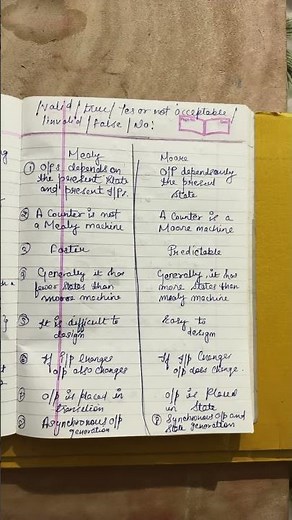 /valid / true / Yes or not acceptable /
/invalid / false / No!
Mealy
① O/Ps depends on
the present state
and present I/Ps.
Moore
O/P depends only
the present
state
② A Counter is not
a Mealy machine
A Counter is a
Moore machine
③ Faster
Predictable
④ Generally it has
fewer states than
moore machine
Generally it has
more states than
mealy machine
⑤ It is difficult to
design
Easy to
design
⑥ If i/p changes
o/p also changes
If I/p Changes
o/p does change.
⑦ o/p is placed in
transition
o/p is placed
in State
⑧ Asynchronous o/p
generation
⑧ Synchronous o/p and
State generation